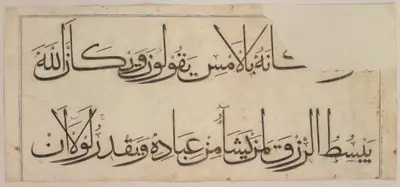 بِالامْسِ يَقُولُونَ وَيْكَاَنَّ اللَّهَ
يَبْسُطُ الرِّزْقَ لِمَنْ يَشَآءُ مِنْ عِبَادِهِ وَيَقْدِرُ لَوْلَا اَنْ